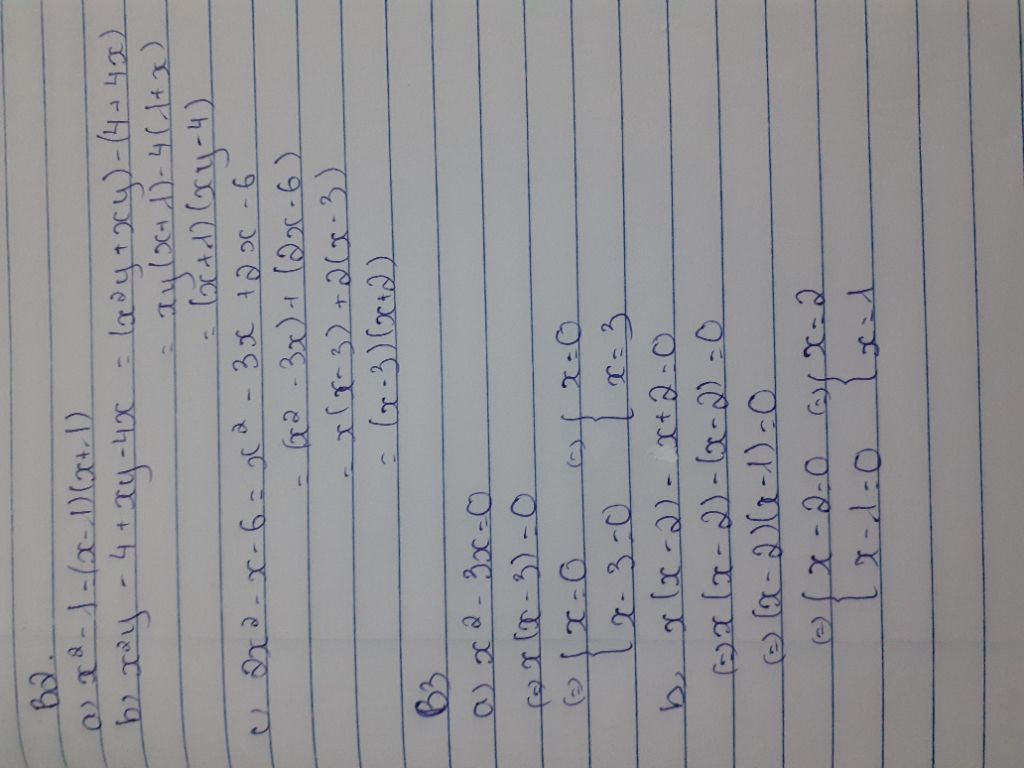 B2.
a) x² - 1 = (x-1)(x+1)
b) x²y - 4 + xy - 4x = (x²y + xy) - (4 + 4x)
= xy(x+1) - 4(1+x)
= (x+1)(xy-4)
c) 2x² - x - 6 = x² - 3x + 2x - 6
= (x² - 3x) + (2x - 6)
= x(x-3) + 2(x-3)
= (x-3)(x+2)
B3
a) x² - 3x = 0
(=) x(x-3) = 0
(=) { x = 0 (=) { x = 0
{ x - 3 = 0 { x = 3
b) x(x-2) - x + 2 = 0
(=) x(x-2) - (x-2) = 0
(=) (x-2)(x-1) = 0
(=) { x - 2 = 0 (=) { x = 2
{ x - 1 = 0 { x = 1